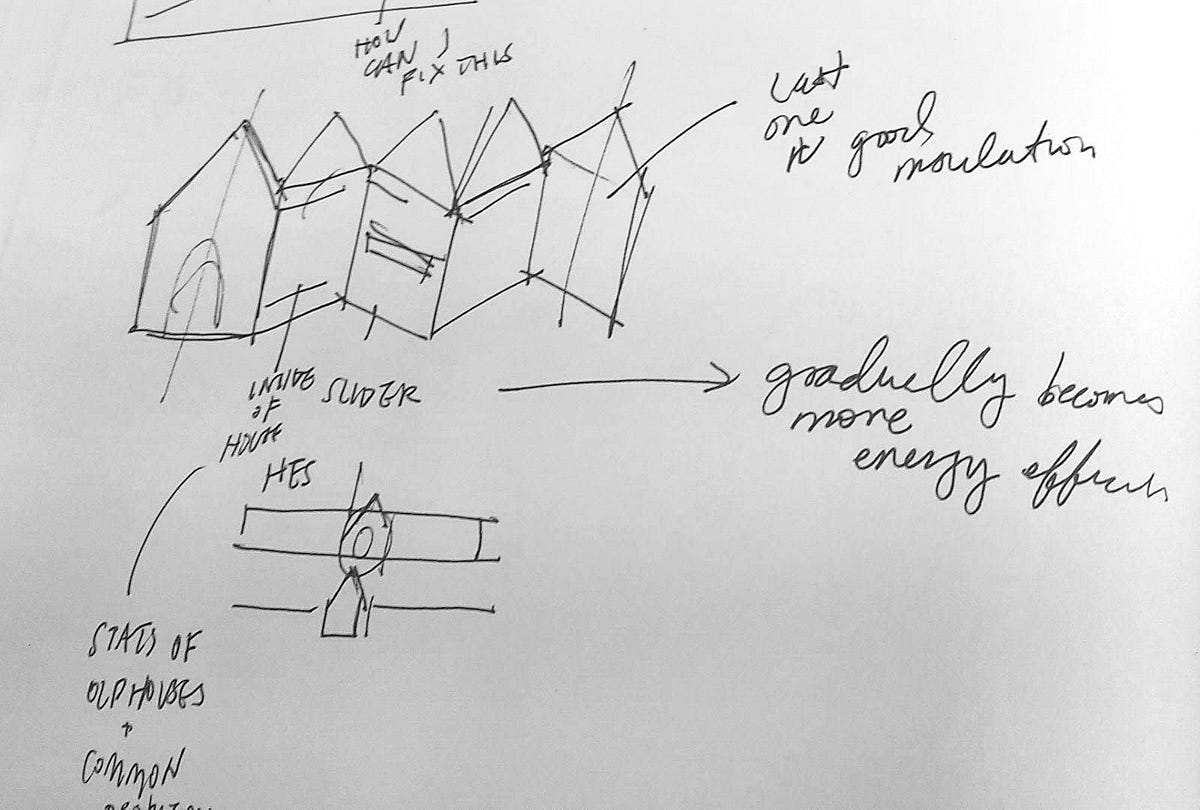 HOW
CAN I
FIX THIS
Last
one
is good
insulation
INSIDE
OF
HOUSE
SLIDER
gradually becomes
more
energy efficient
HES
STATS OF
OLD HOUSES
+
COMMON